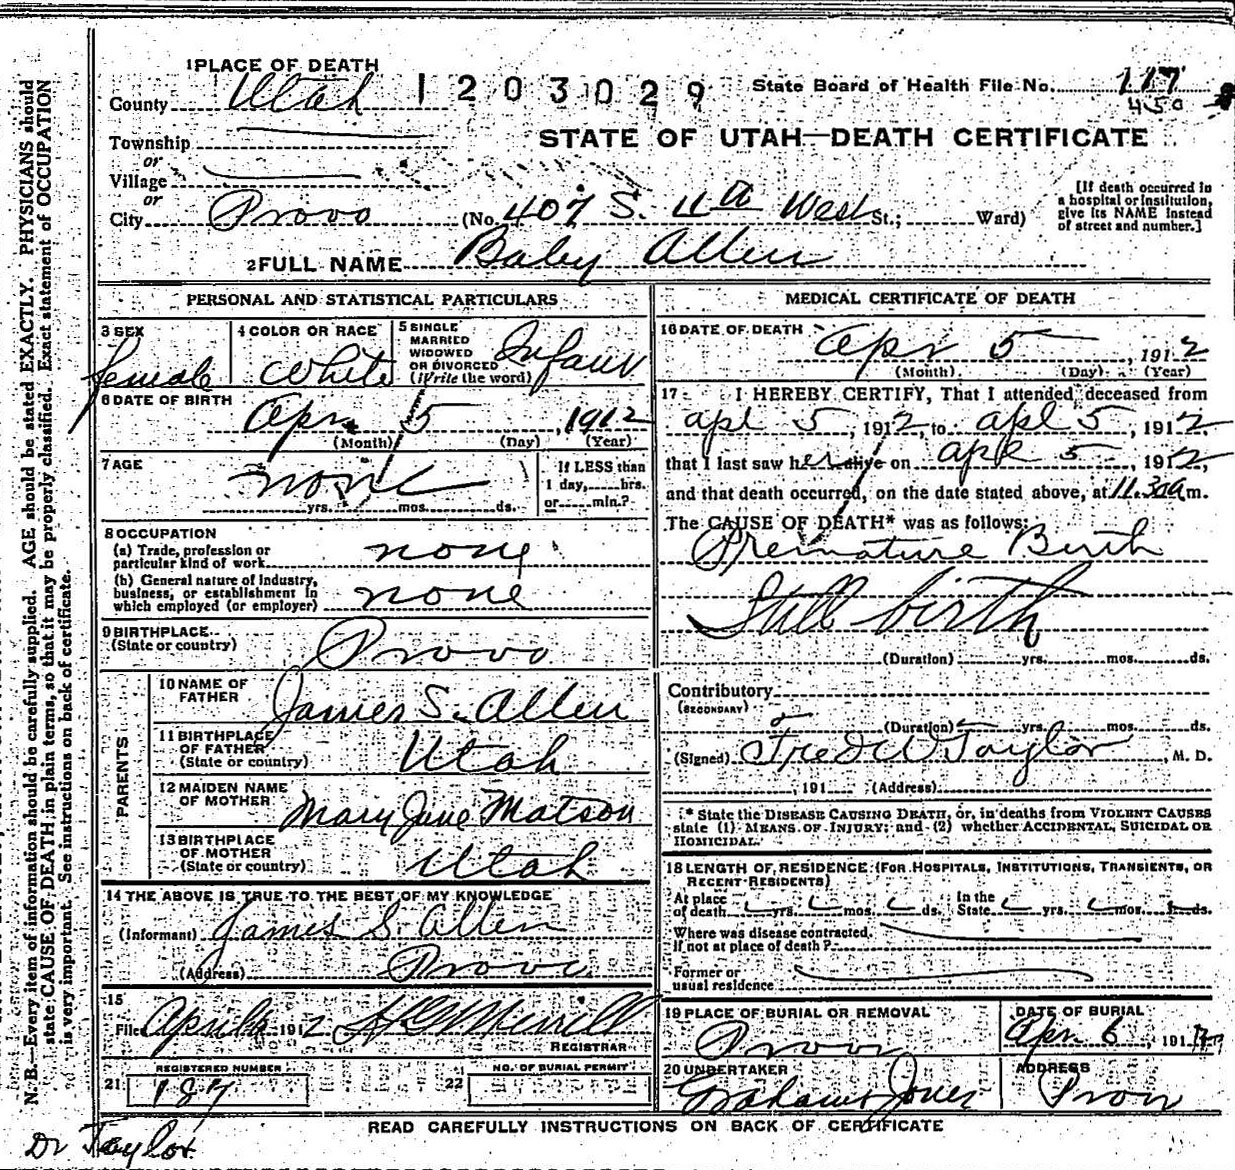 1 PLACE OF DEATH
County Utah 1203029 State Board of Health File No. 117
450
Township
STATE OF UTAH—DEATH CERTIFICATE
or
Village
or
City Provo (No. 407 S. 4th West St.; Ward)
[If death occurred in a hospital or institution, give its NAME instead of street and number.]
2 FULL NAME Baby Allen
PERSONAL AND STATISTICAL PARTICULARS
3 SEX female
4 COLOR OR RACE White
5 SINGLE MARRIED WIDOWED OR DIVORCED (Write the word) Infant
6 DATE OF BIRTH Apr 5, 1912
(Month) (Day) (Year)
7 AGE none
yrs. mos. ds.
If LESS than 1 day, hrs. or min.?
8 OCCUPATION
(a) Trade, profession or particular kind of work none
(b) General nature of industry, business, or establishment in which employed (or employer) none
9 BIRTHPLACE (State or country) Provo
PARENTS
10 NAME OF FATHER James S. Allen
11 BIRTHPLACE OF FATHER (State or country) Utah
12 MAIDEN NAME OF MOTHER Mary Jane Matson
13 BIRTHPLACE OF MOTHER (State or country) Utah
14 THE ABOVE IS TRUE TO THE BEST OF MY KNOWLEDGE
(Informant) James S. Allen
(Address) Provo
15
Filed April 1912 Merrill
REGISTRAR
REGISTERED NUMBER
21 187
NO. OF BURIAL PERMIT
22
MEDICAL CERTIFICATE OF DEATH
16 DATE OF DEATH Apr 5, 1912
(Month) (Day) (Year)
17 I HEREBY CERTIFY, That I attended deceased from
Apl 5, 1912, to Apl 5, 1912,
that I last saw her alive on Apl 5, 1912,
and that death occurred, on the date stated above, at 11.30 a m.
The CAUSE OF DEATH* was as follows:
Premature Birth
Still birth
(Duration) yrs. mos. ds.
Contributory
(SECONDARY)
(Duration) yrs. mos. ds.
(Signed) Fred W Taylor, M. D.
, 191 (Address)
* State the DISEASE CAUSING DEATH, or, in deaths from VIOLENT CAUSES
state (1) MEANS OF INJURY; and (2) whether ACCIDENTAL, SUICIDAL OR
HOMICIDAL.
18 LENGTH OF RESIDENCE (FOR HOSPITALS, INSTITUTIONS, TRANSIENTS, OR
RECENT RESIDENTS)
At place of death yrs. mos. ds. In the State yrs. mos. ds.
Where was disease contracted,
If not at place of death?
Former or
usual residence
19 PLACE OF BURIAL OR REMOVAL Provo
DATE OF BURIAL Apr. 6, 191
20 UNDERTAKER Graham Jones
ADDRESS Provo
READ CAREFULLY INSTRUCTIONS ON BACK OF CERTIFICATE
Dr Taylor
N. B.—Every item of information should be carefully supplied. AGE should be stated EXACTLY. PHYSICIANS should
state CAUSE OF DEATH in plain terms, so that it may be properly classified. Exact statement of OCCUPATION
is very important. See instructions on back of certificate.